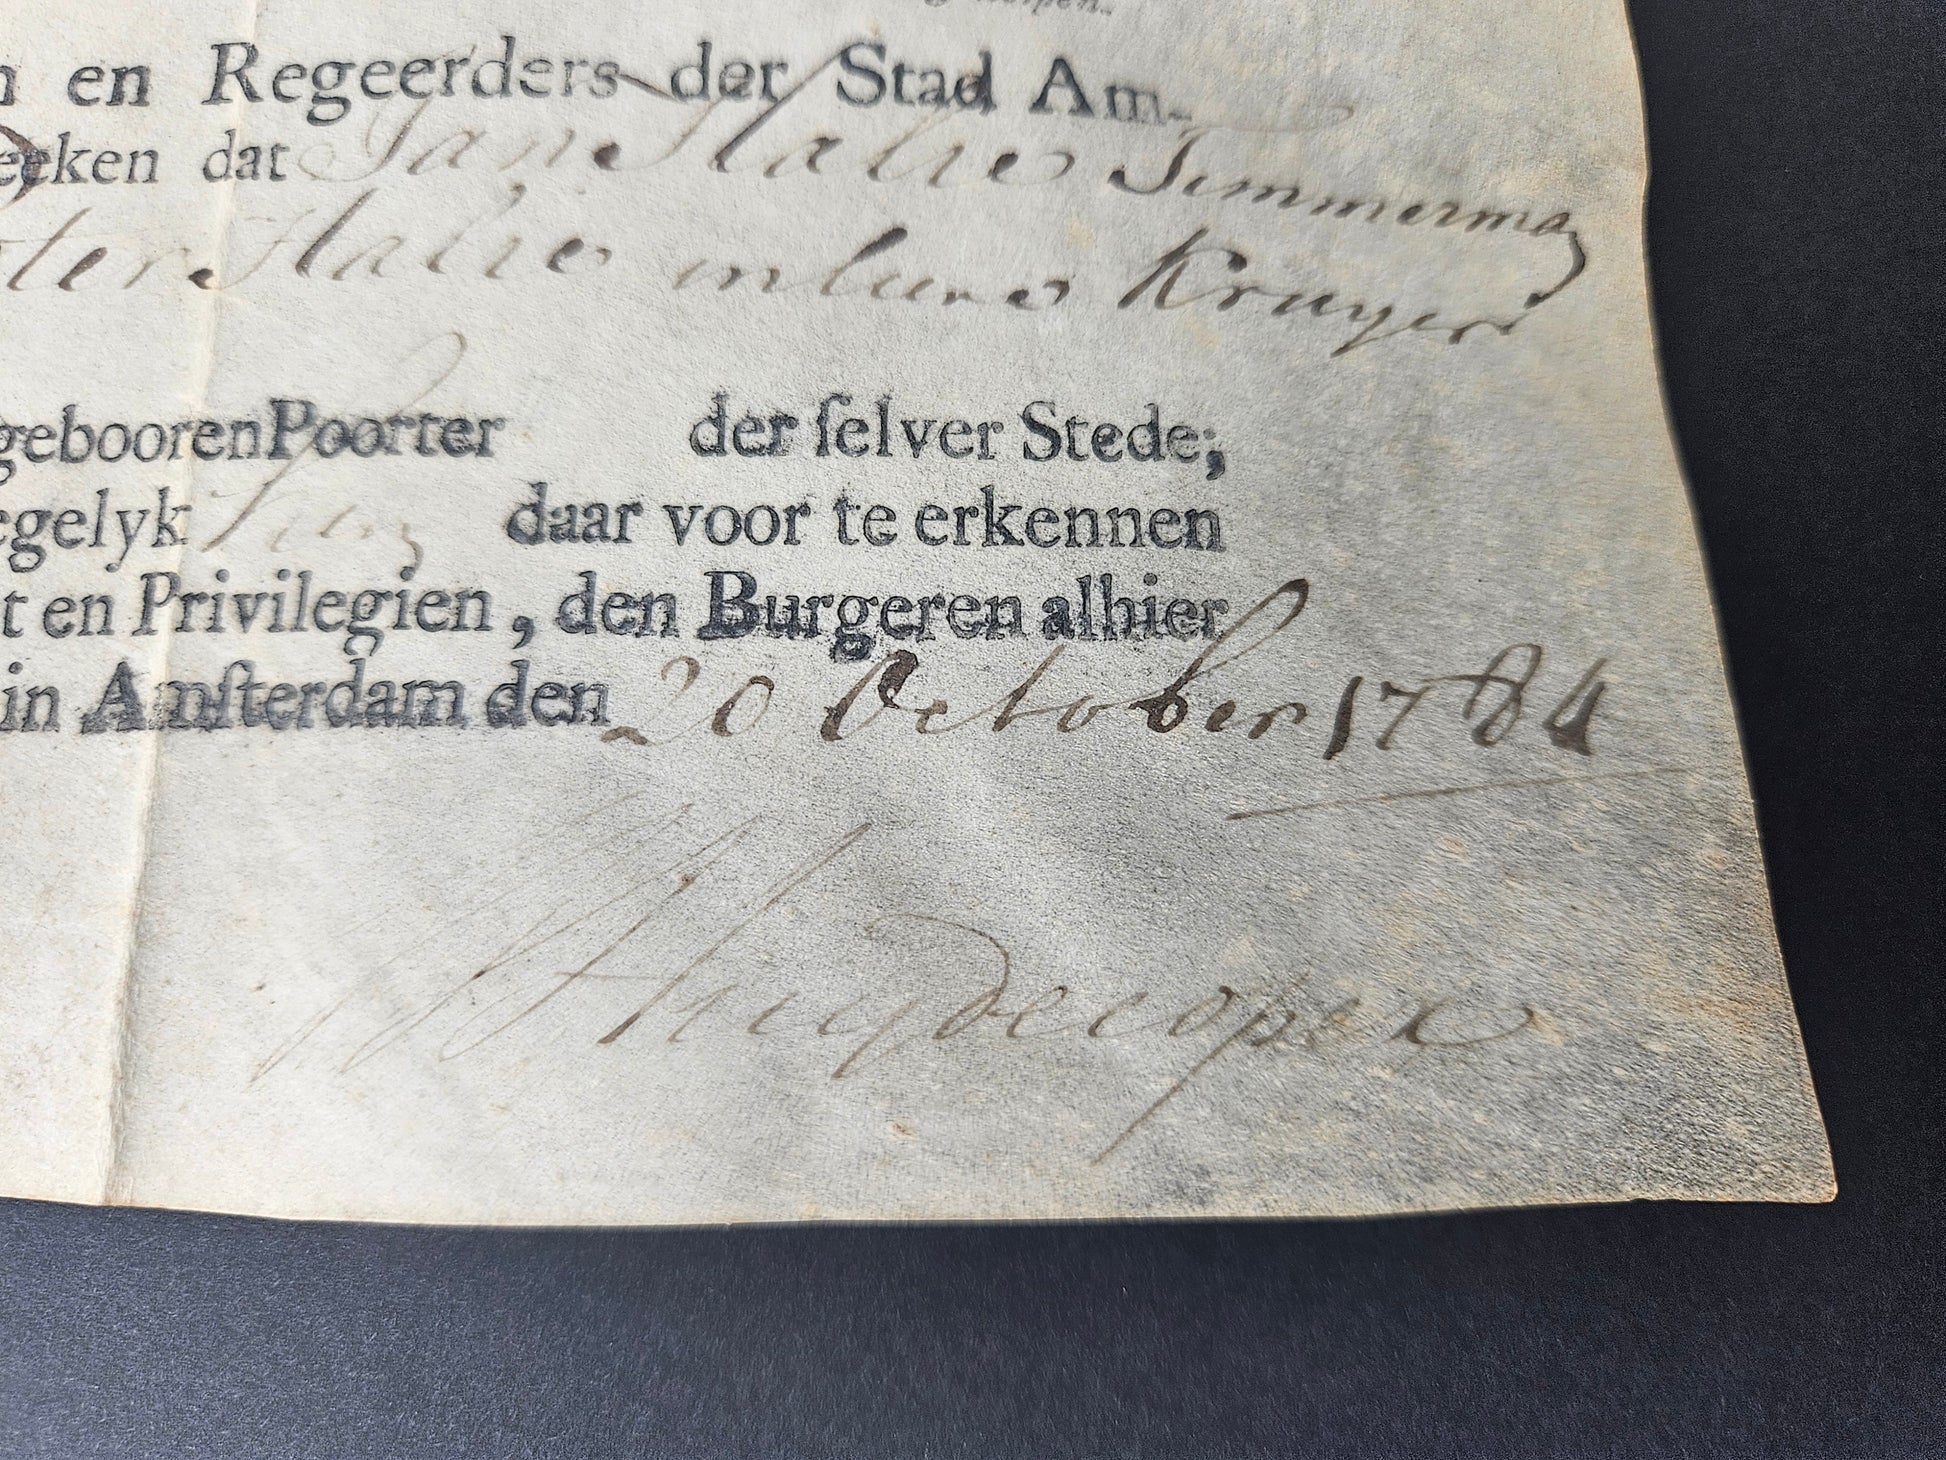 en Regeerders der Stad Am-
dat Jan Stalie Timmerman
Stalie in leeven Kruyer
gebooren Poorter der ſelver Stede;
daar voor te erkennen
t en Privilegien, den Burgeren alhier
in Amſterdam den 20 October 1784
Huydecoper